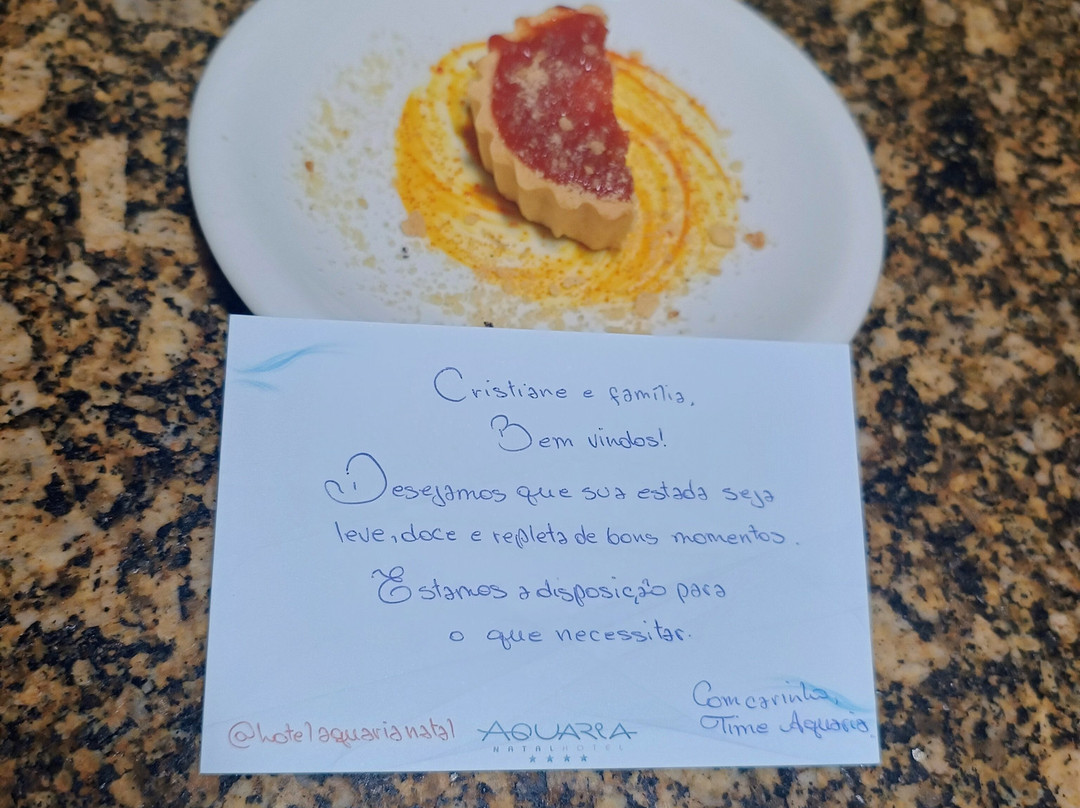 Cristiane e família,
Bem vindos!
Desejamos que sua estada seja
leve, doce e repleta de bons momentos.
Estamos a disposição para
o que necessitar.
Com carinho,
Time Aquaria.
@hotelaquarianatal
AQUARIA
NATAL HOTEL